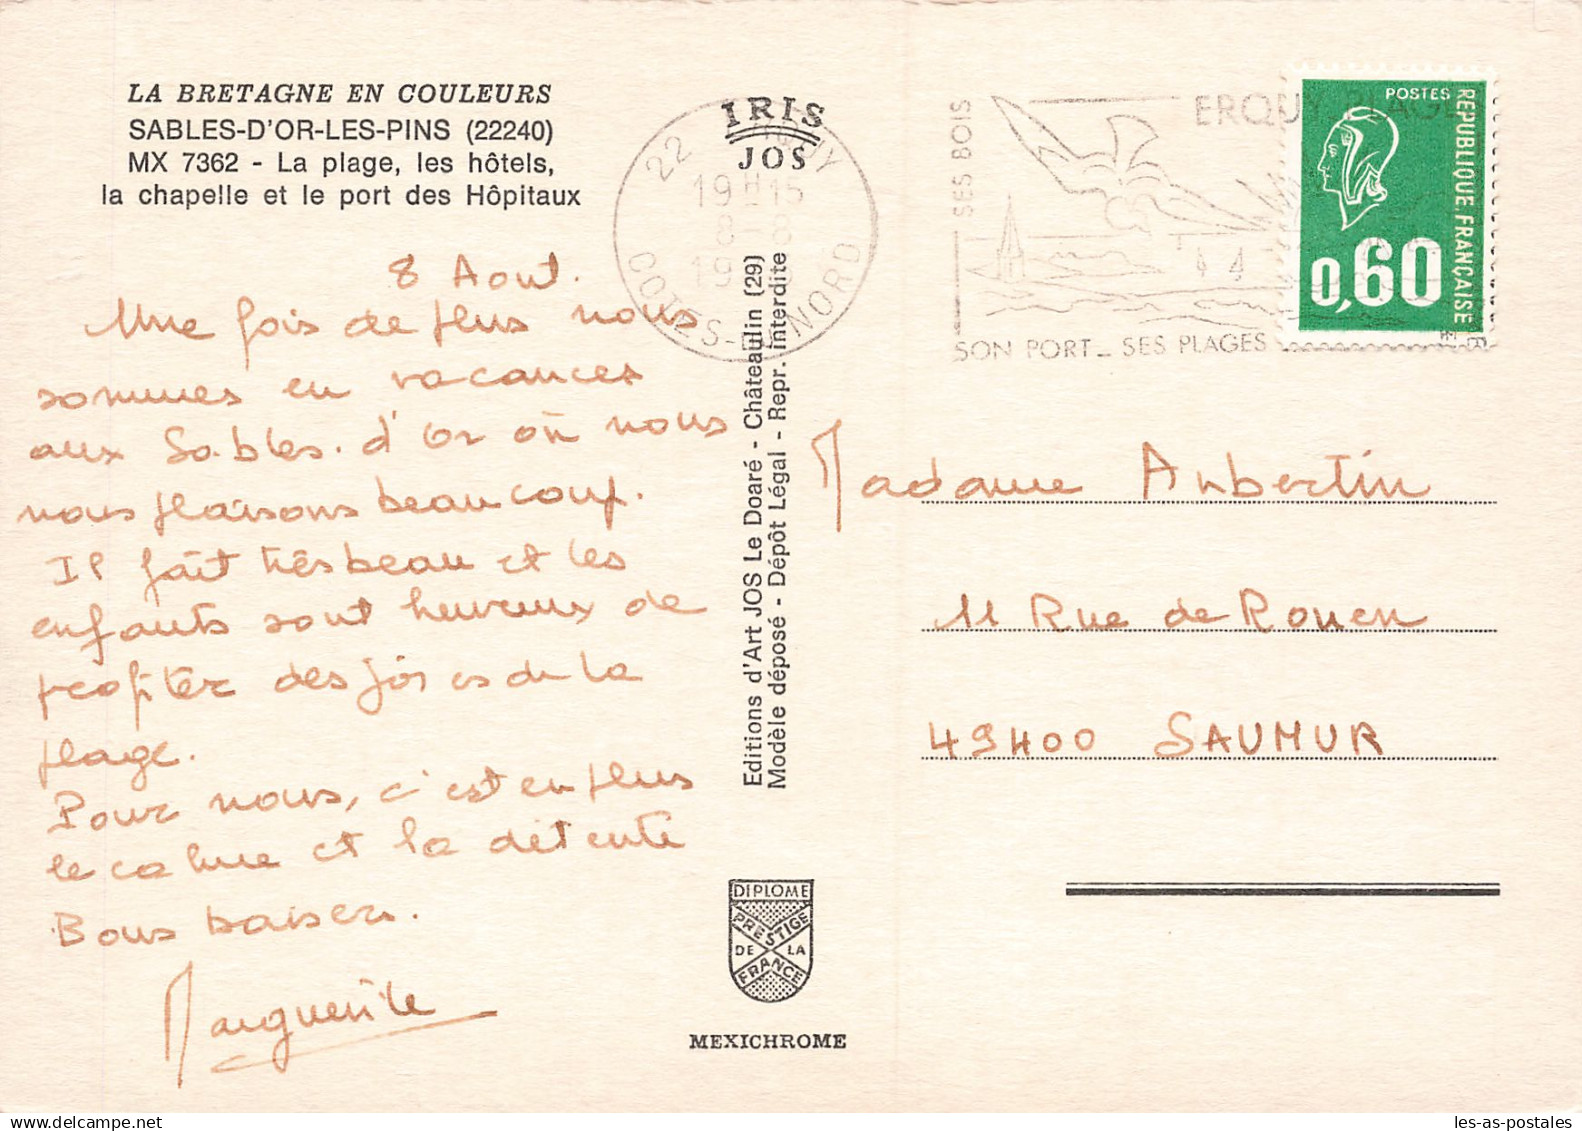 LA BRETAGNE EN COULEURS
SABLES-D'OR-LES-PINS (22240)
MX 7362 - La plage, les hôtels,
la chapelle et le port des Hôpitaux
8 Aout.
Une fois de plus nous
sommes en vacances
aux Sables. d'Or où nous
nous plaisons beaucoup.
Il fait très beau et les
enfants sont heureux de
profiter des joies de la
plage.
Pour nous, c'est en plus
le calme et la détente
Bons baisers.
Marguerite
IRIS
JOS
22
19H15
8
19
COTES-DU-NORD
Editions d'Art JOS Le Doaré - Châteaulin (29)
Modèle déposé - Dépôt Légal - Repr. interdite
DIPLOME
PRESTIGE
DE LA
FRANCE
MEXICHROME
ERQUY PLAGE
SES BOIS
SON PORT - SES PLAGES
POSTES
REPUBLIQUE FRANÇAISE
0,60
Madame Aubertin
11 Rue de Rouen
49400 SAUMUR
les-as-postales